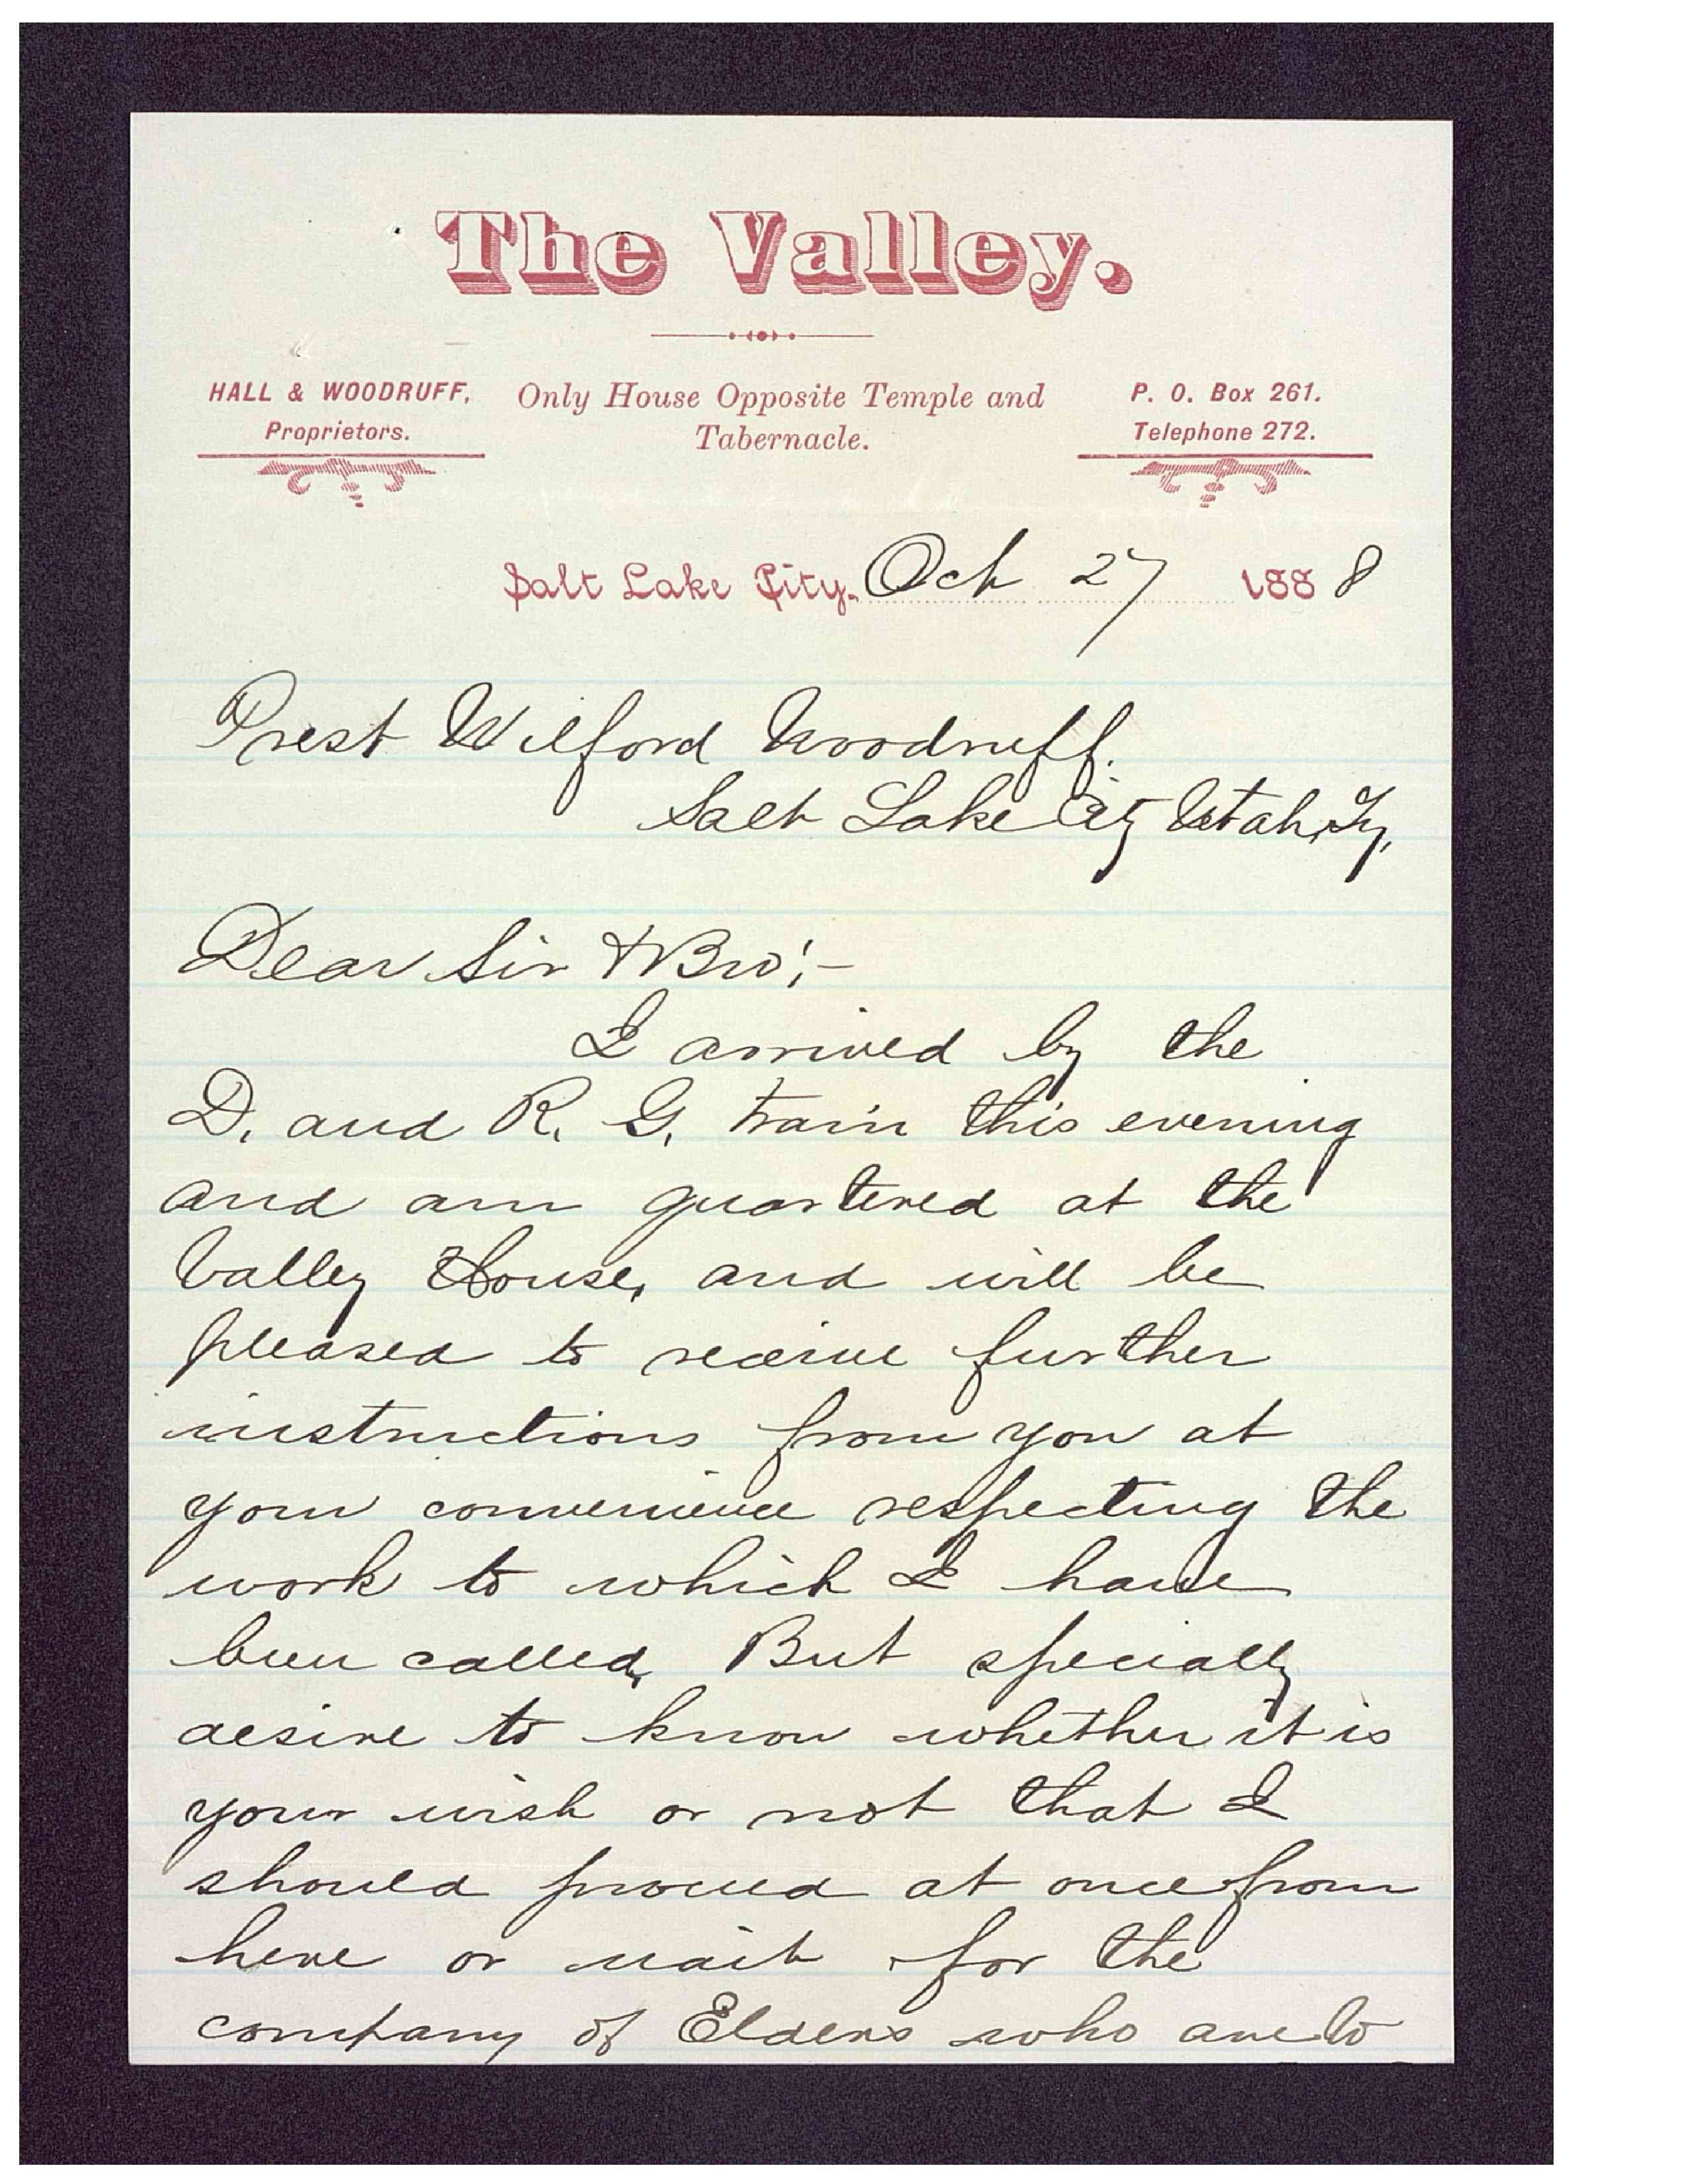 The Valley.
HALL & WOODRUFF,
Proprietors.
Only House Opposite Temple and
Tabernacle.
P. O. Box 261.
Telephone 272.
Salt Lake City. Oct 27 1888
Prest Wilford Woodruff.
Salt Lake City Utah, Ty,
Dear Sir & Bro;-
I arrived by the
D. and R. G. train this evening
and am quartered at the
Valley House, and will be
pleased to receive further
instructions from you at
your convenience respecting the
work to which I have
been called, But specially
desire to know whether it is
your wish or not that I
should proceed at once from
here or wait for the
company of Elders who are to